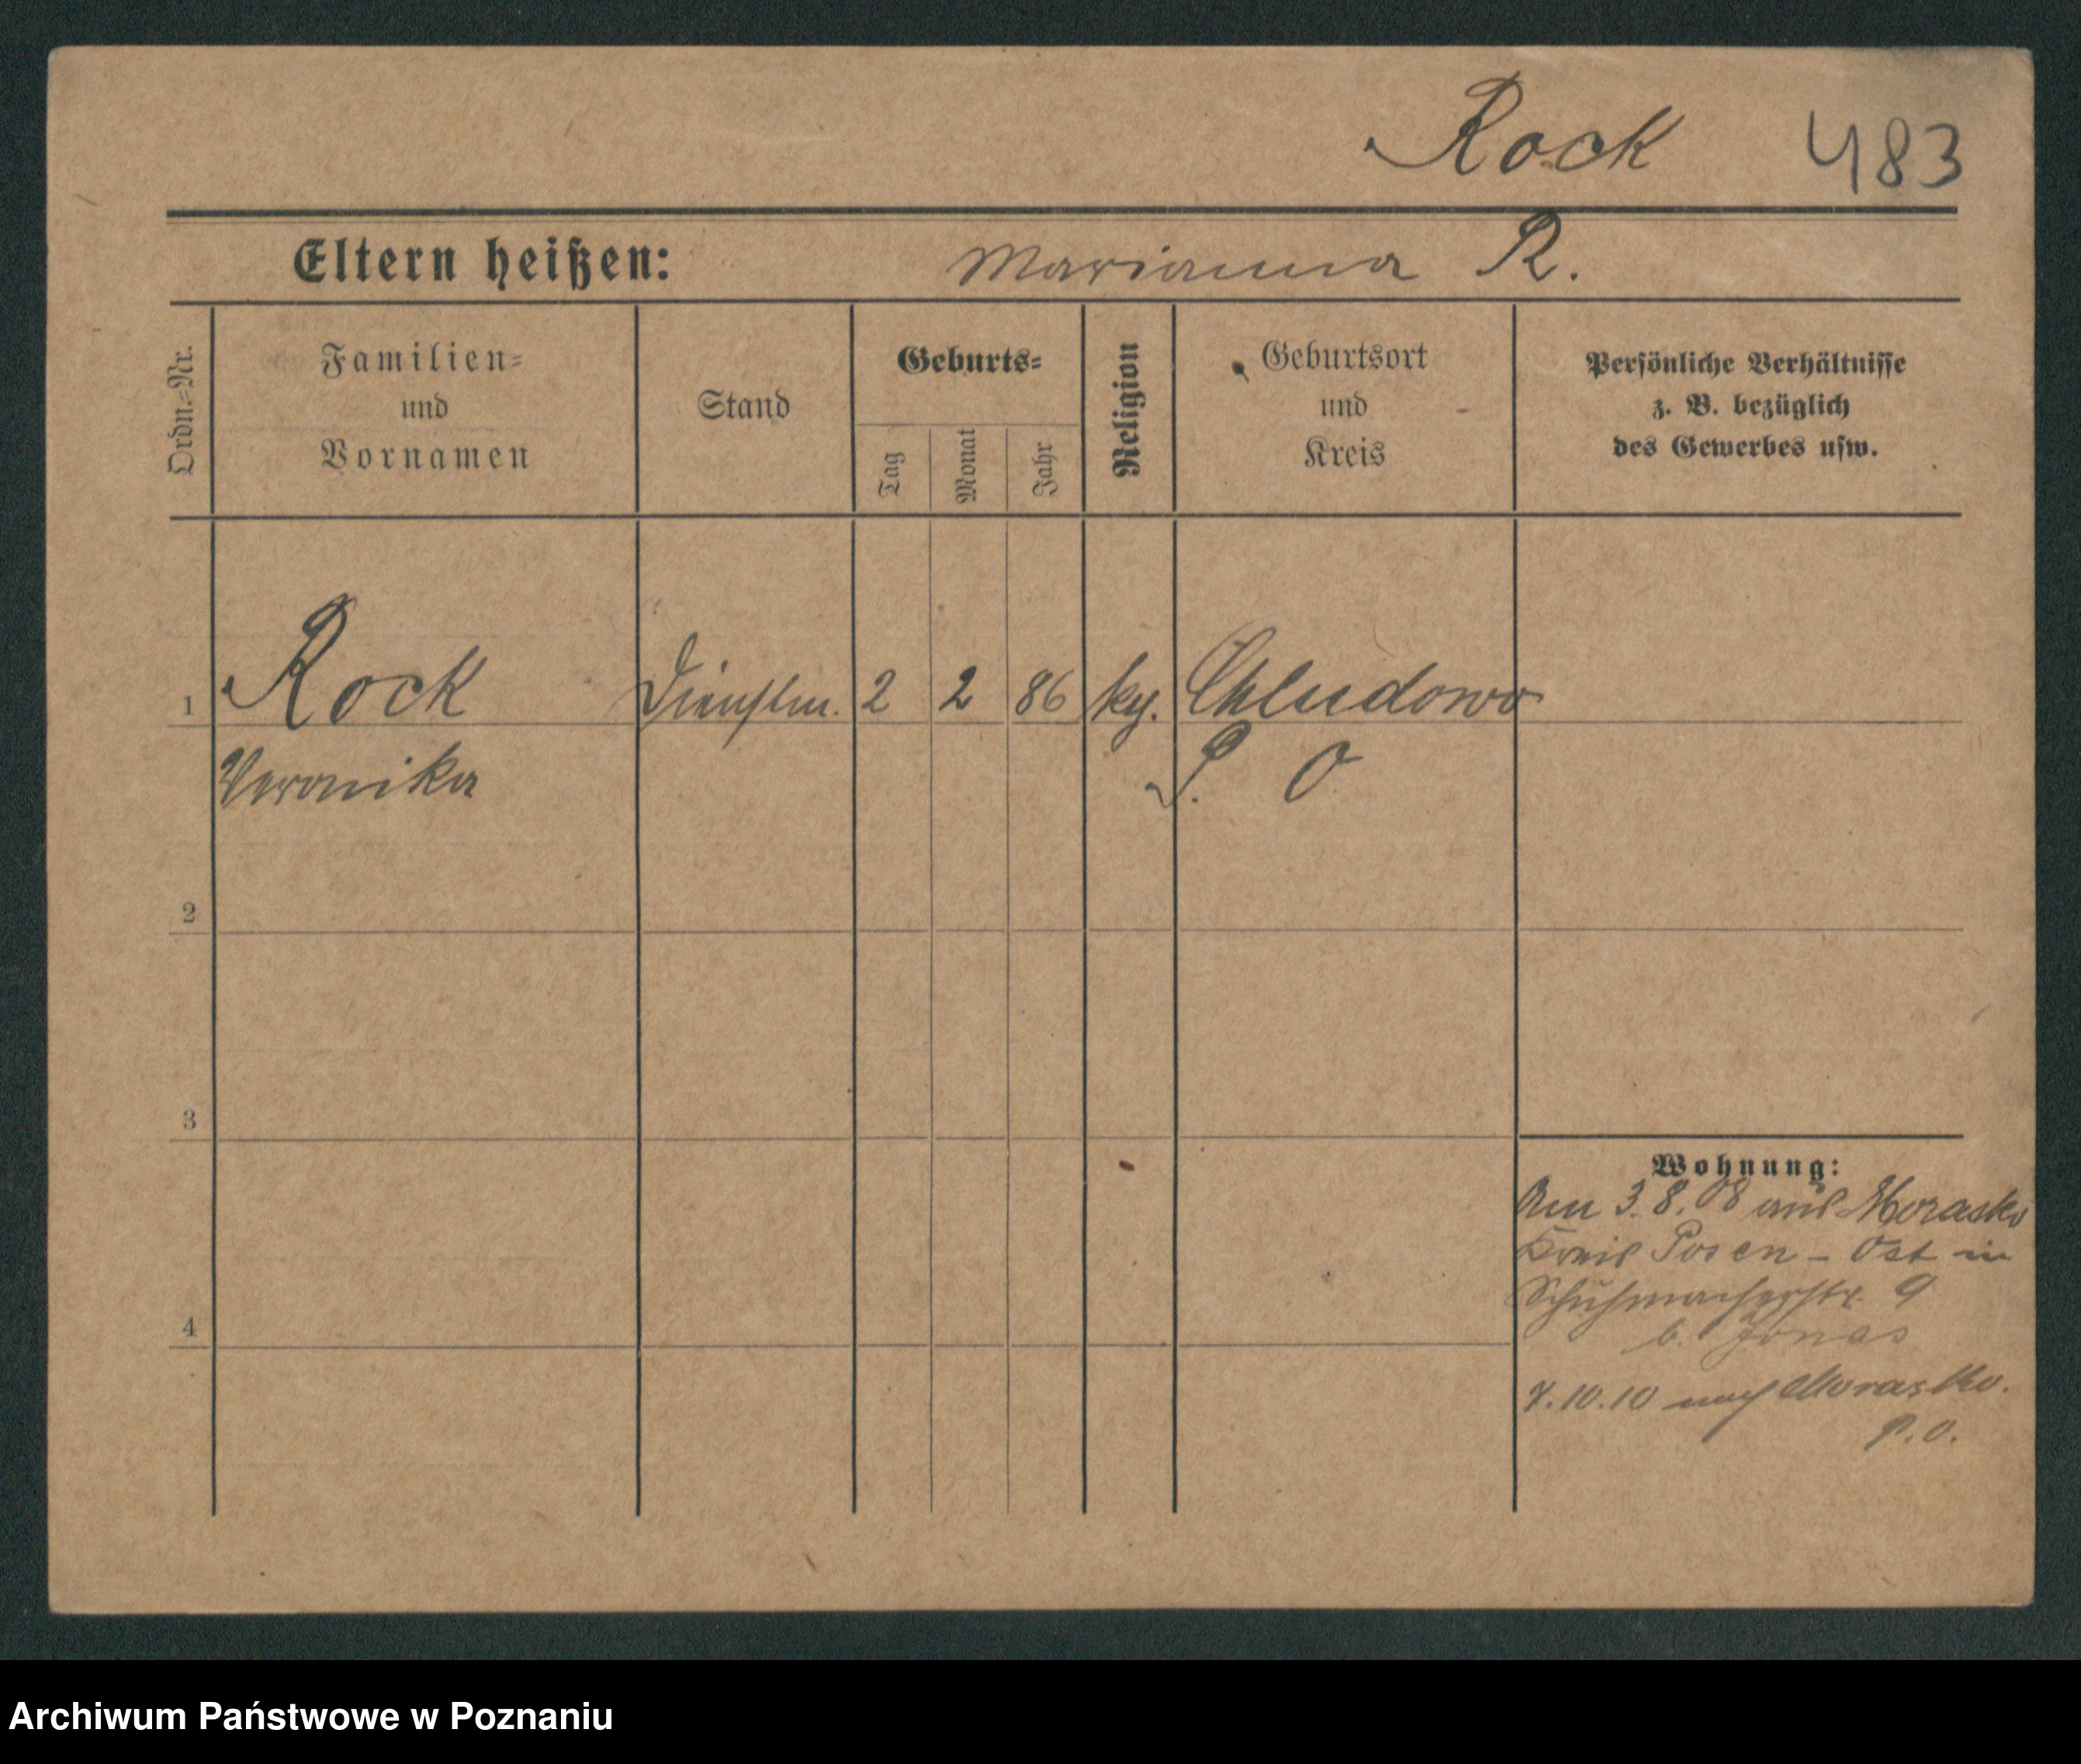 Rock 483
Eltern heißen: Marianna R.
Ordn.-Nr.
Familien-
und
Vornamen
Stand
Geburts-
Tag
Monat
Jahr
Religion
Geburtsort
und
Kreis
Persönliche Verhältnisse
z. B. bezüglich
des Gewerbes usw.
1 Rock Dienstm. 2 2 86 kg. Chludowo
Veronika P. O
2
3
4
Wohnung:
Am 3.8.08 aus Morasko
Kreis Posen - Ost in
Schuhmacherstr. 9
b. Jonas
7.10.10 nach Morasko.
P.O.
Archiwum Państwowe w Poznaniu